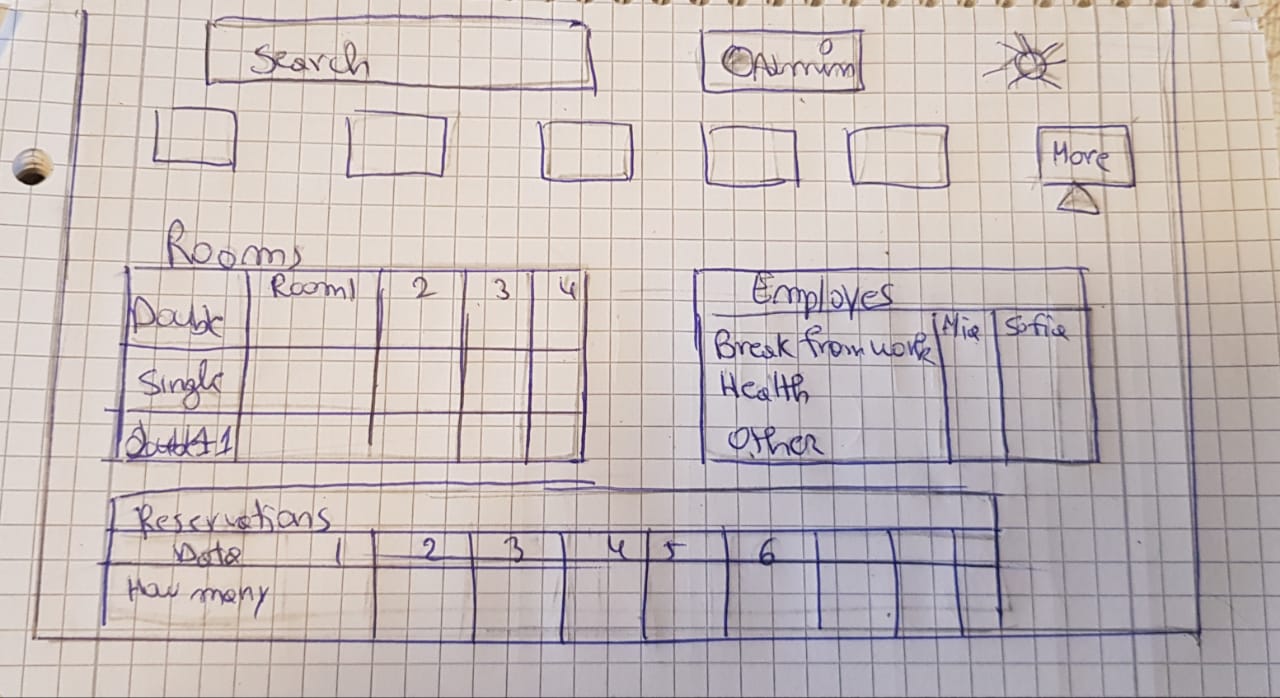 Search
Admin
More
Rooms
Room1 2 3 4
Double
Single
Double+1
Employes
Mia Sofia
Break from work
Health
Other
Reservations
Date 1 2 3 4 5 6
How many